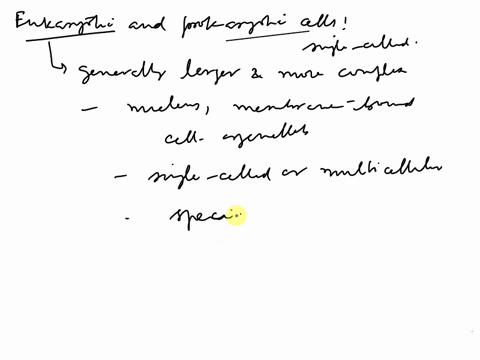 Eukaryotic and prokaryotic cells!
single-celled.
↳ generally larger & more complex
- nucleus, membrane-bound
cell organelles
- single-celled or multicellular
- speci